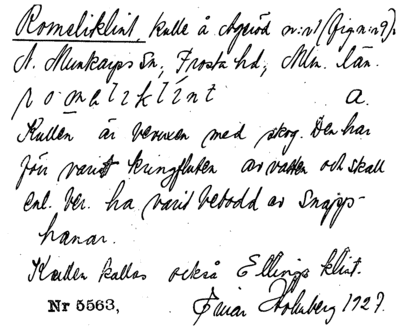 Romeliklint, kulle å Ageröd nr:v1 (fig n:r9).
N. Munkarps Sn, Frosta hd, Mlm. län.
romeliklint a.
Kullen är bevuxen med skog. Den har
förr varit kringfluten av vatten och skall
enl. ber. ha varit bebodd av Snapp-
hanar.
Kullen kallas också Ellings klint.
Nr 5563, Einar Holmberg 1927.